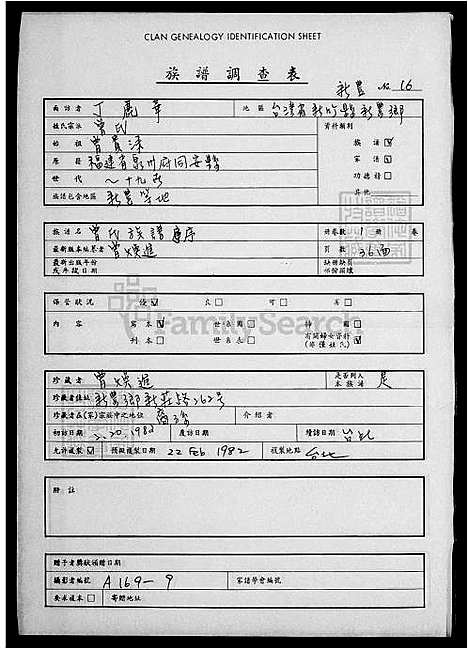 CLAN GENEALOGY IDENTIFICATION SHEET
族譜調查表
新豐 No 16
面訪者 丁麗華 地區 台灣省新竹縣新豐鄉
姓氏宗派 曾氏 資料類別
始祖 曾 族譜 ☑
原籍 福建省泉州府同安縣 家譜 ☑
世代 ～十九世 功德榜 ☐
族譜包含地區 新豐等地 其他
族譜名 曾氏族譜 冊卷數 1 冊 卷
最新版本編纂者 曾煥進 頁數 36面
最新出版年份
或年限日期
缺冊缺頁
份份損壞
保管狀況 優 ☑ 良 ☐ 可 ☐ 劣 ☐
內容 寫本 ☑ 世系圖 ☐ 神圖 ☐
刊本 ☐ 世系表 ☐ 有關婦女資料 ☑
(單僅姓氏)
FamilySearch
珍藏者 曾煥進 是否列入本族譜 是
珍藏者住址 新豐鄉新莊路262号
珍藏者在(家)宗族中之地位 裔孫 介紹者
初訪日期 2.20.1982 度訪日期 續訪日期 台北
允許複製 ☑ 預擬複製日期 22 Feb 1982 複製地點 台北
附註
贈予者獎狀頒贈日期
攝影者編號 A169-9 家譜學會編號
要求複本 ☐ 寄贈地址